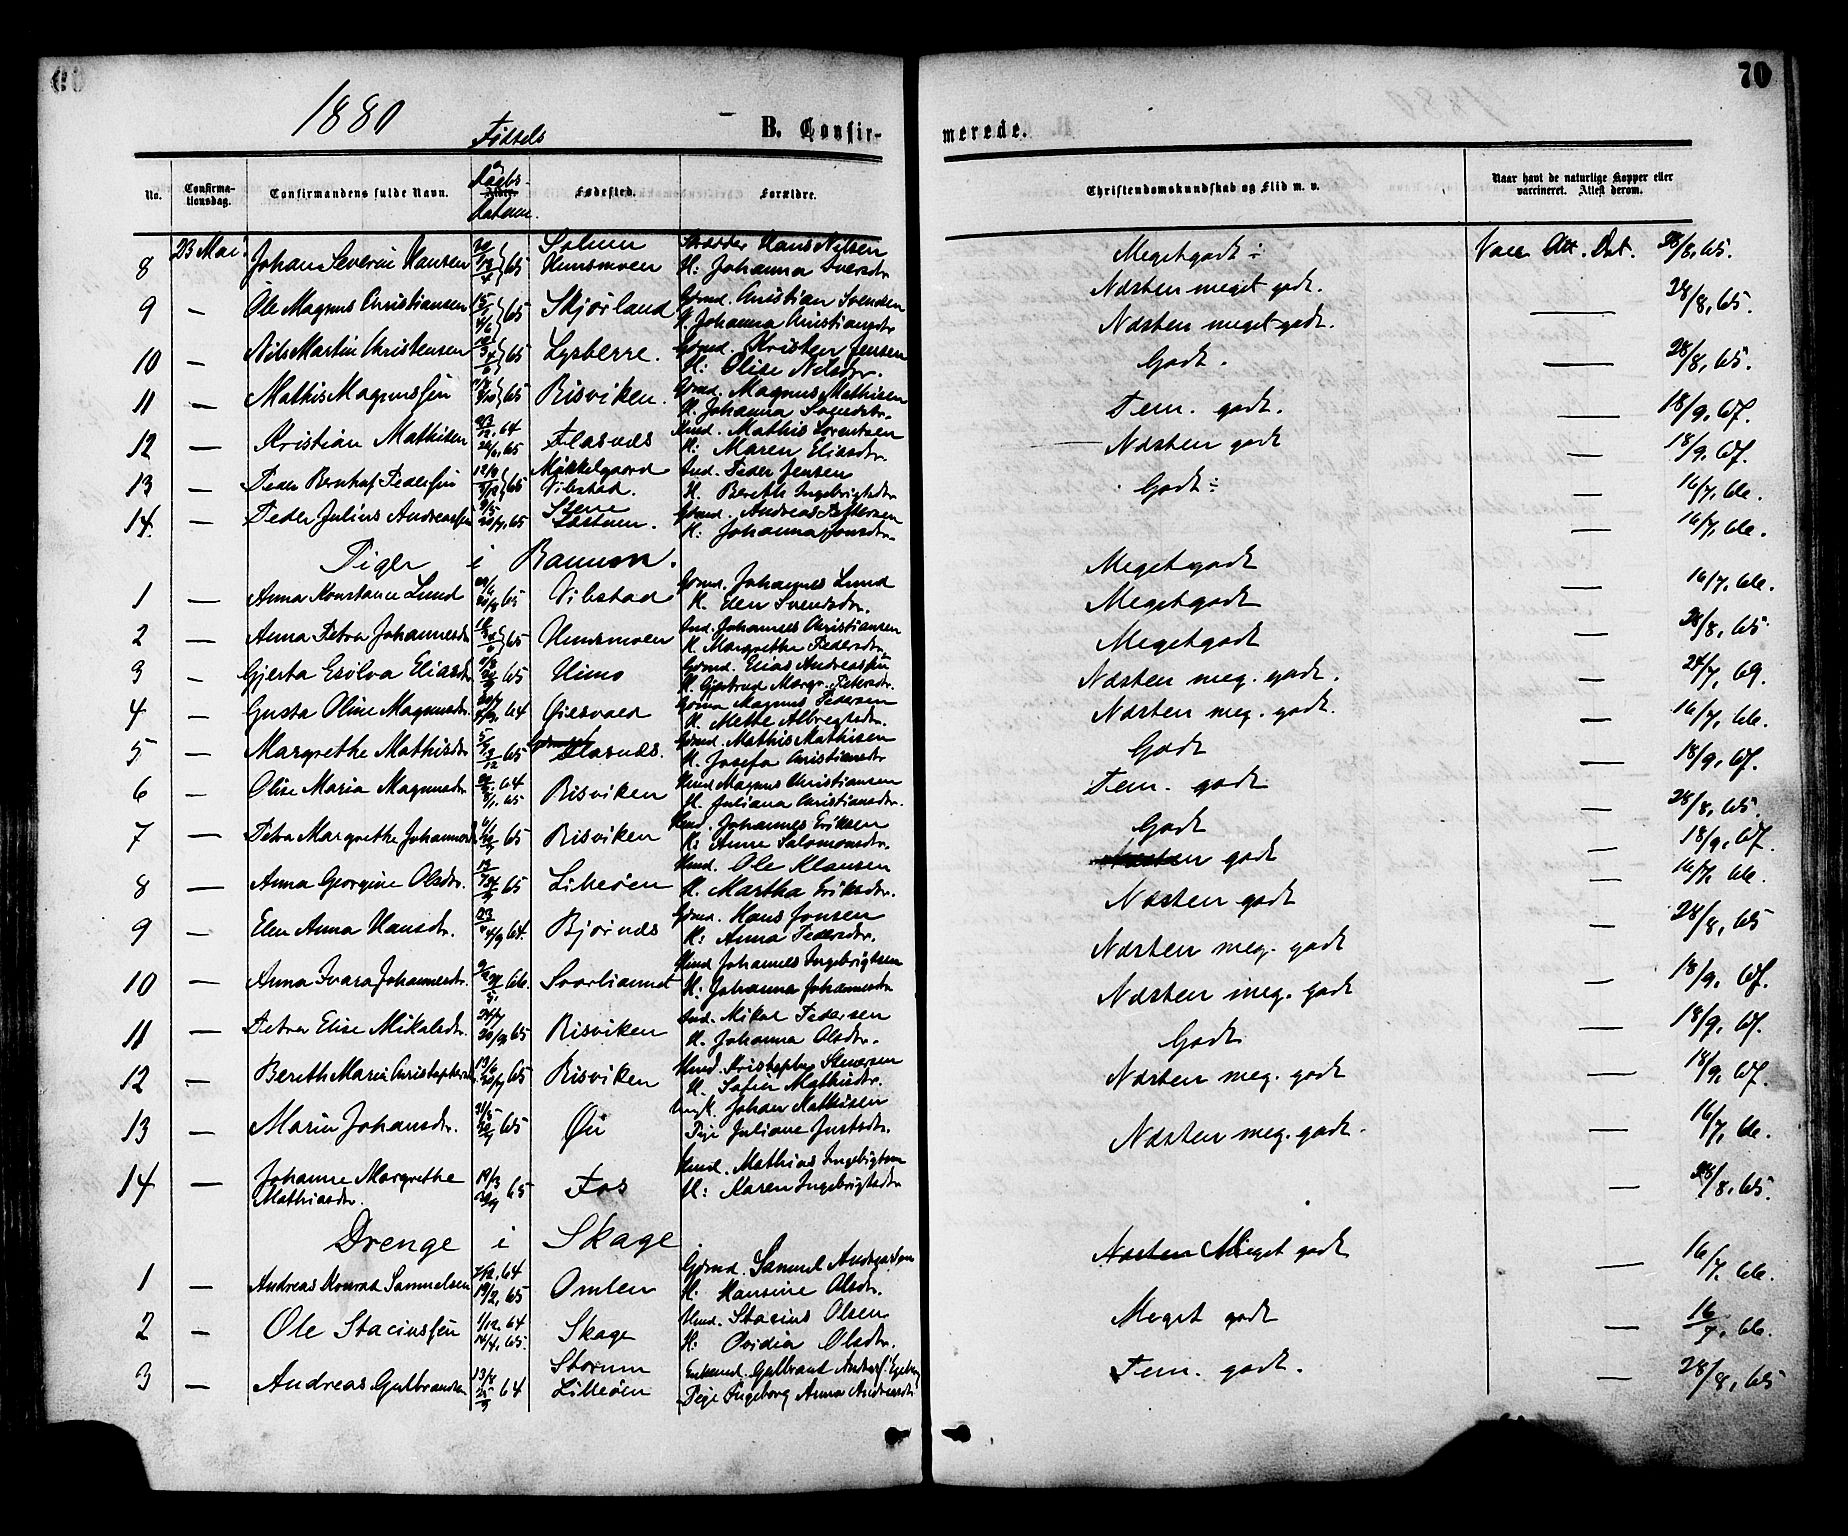 70
1880
B. Confir-
merede.
Fødsels
No.
Confirma-
tionsdag.
Confirmandens fulde Navn.
Daabs-
datum.
Fødested.
Forældre.
Christendomskundskab og Flid m. v.
Naar havt de naturlige Kopper eller
vaccineret. Attest derom.
8 23 Mai Johan Severin Hansen 65 Hunsmoen Hans Nilsen
H: Johanna Iversdtr. Megetgodt Vacc. Att. Dat. 28/8, 65.
9 — Ole Magnus Christiansen 65 Skjørland Gdmd. Christian Svendsen
H. Johanna Christiansdtr. Næsten meget godt. — 28/8, 65.
10 — Nils Martin Christensen 65 Lysberre. Gdmd. Kristen Jensen
H: Olise Nilsdtr. Næsten meget godt. — 28/8, 65.
11 — Mathis Magnussen 65 Risviken. Magnus Mathisen
H. Johanna Svendsdtr. Godt. — 18/9, 67.
12 — Kristian Mathisen 64 65 Flasnes Hmd. Mathis Lorentsen
H: Maren Eliasdtr. Tem. godt. — 18/9, 67.
13 — Peder Bernhof Pedersen 65 Mækkelgaard
Vibstad. Ind. Peder Jensen
H. Bereth Ingebrigtsdtr. Næsten godt — 16/7, 66.
14. — Peder Julius Andreassen 65 Gdmd. Andreas Pettersen
H: Johanna Jonsdtr. Godt — 16/7, 66.
Piger i Ranum.
1 — Anna Konstance Lund 65 Vibstad Gdmd. Johannes Lund
H. Elen Svendsdtr. Megetgodt — 16/7, 66.
2 — Anna Petra Johannesdtr. 65 Hunsmoen Ind. Johannes Christiansen
H. Margrethe Pedersdtr. Megetgodt — 28/8, 65
3 — Gjerta Esølva Eliasdtr. 65 Himo Gdmd. Elias Andreassen
H. Gjertrud Margr. Petersdtr. Megetgodt — 24/7, 69.
4 — Gusta Oline Magnusdtr. 64 Gdmd Magnus Pedersen
H. Mette Albregtsdtr. Næsten meg. godt. — 16/7, 66.
5 — Margrethe Mathisdtr. 65 Flasnes. Gdmd. Mathis Mathisen
H. Josefa Christiansdtr Næsten meg. godt. — 18/9, 67.
6 — Olise Maria Magnusdtr. 64 65 Risviken Hmd Magnus Christiansen
H. Juliana Christiansdtr. Godt — 28/8, 65.
7 — Petra Margrethe Johannesdtr 65 Risviken Hmd. Johannes Eriksen
H: Anne Salomonsdtr. Tem. godt — 18/9, 67.
8 — Anna Georgine Olsdtr. 65 Lilleøen Hmd. Ole Klausen
H. Martha Eriksdtr. Godt — 16/7, 66.
9 — Elen Anna Hansdtr. 4/9 64. Bjørnes Gdmd. Hans Jonsen
H: Anna Pedersdtr. godt — 28/8, 65
10 — Anna Ivara Johannesdtr. 66. Svarliaunet Hmd Johannes Ingebrigtsen
H: Johanna Johannesdtr. Næsten godt — 18/9, 67.
11 — Petra Elise Mikalsdtr. 24/7 20/9 65 Risviken Ind. Mikal Pedersen
H. Johanna Olsdtr. Næsten meg. godt — 18/9, 67.
12 — Bereth Maria Christophersdtr. 13/6 65 Risviken Hmd. Kristopher Stenersen
H. Sofia Mathisdtr. Næsten meg. godt — 18/9, 67.
13 — Marie Johansdtr. 65 Øie Ungk. Johan Mathisen
Pige Juliane Justsdtr. Godt — 16/7, 66.
14 — Johanne Margrethe
Mathiasdtr. 19/3 65 Fos Hmd. Mathias Ingebrigtsen
H: Karen Ingebrigtsdtr Næsten meg. godt — 28/8, 65.
Næsten meg. godt.
Drenge i Skage
1 — Andreas Konrad Samuelsen 7/12, 64
19/2, 65 Omlen Gdmd. Samuel Andreassen
H: Hansine Olsdtr. Næsten Meget godt — 16/7, 66.
2 — Ole Staciussen 1/12, 64
14/4, 65. Skage Hmd. Stacius Olsen
H: Ovidia Olsdtr. Meget godt — 16/7, 66.
3 — Andreas Gulbrandsen 13/8 64 Storum
Lilleøen Enkemd. Gulbrand
Pige Ingeborg Anna Andreasdtr Tem. godt. — 28/8, 65